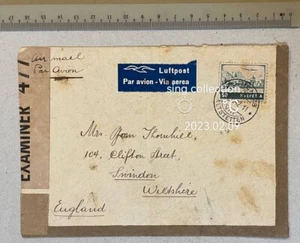 air mail
Par Avion
Luftpost
Par avion - Via aerea
HELVETIA
EXAMINER 477
sing collection
2023.02.09
Mrs. Joan Thornhill,
104, Clifton Street,
Swindon
Wiltshere
England